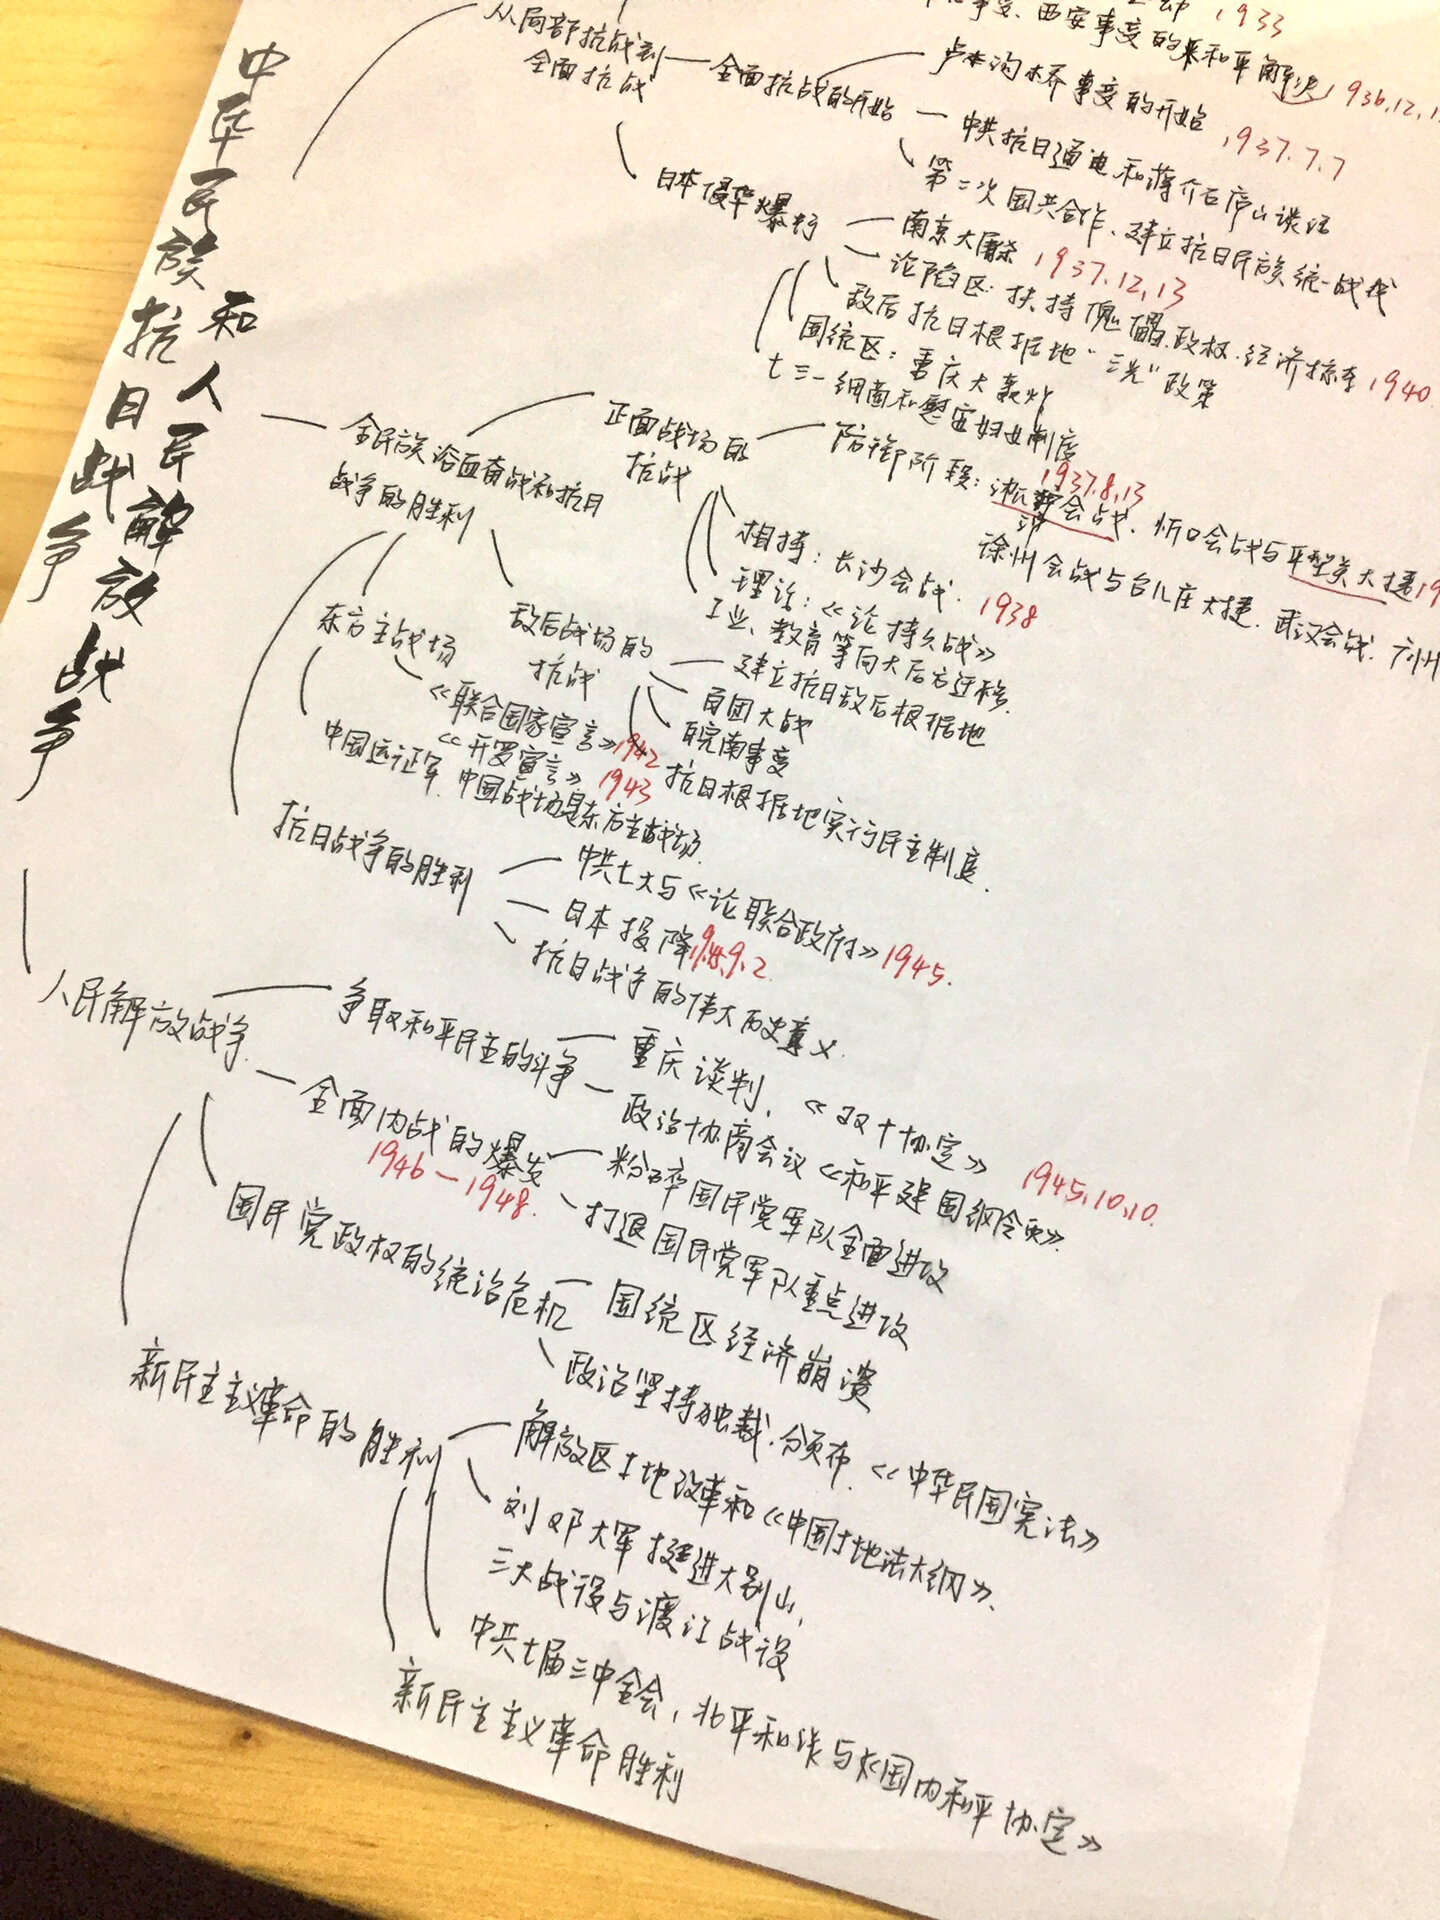 中华民族抗日战争
和人民解放战争
从局部抗战到
全面抗战
1933
西安事变的和平解决 1936.12.1
全面抗战的开始
卢沟桥事变的开始 1937.7.7
中共抗日通电和蒋介石庐山谈话
第二次国共合作、建立抗日民族统一战线
日本侵华暴行
南京大屠杀 1937.12.13
沦陷区:扶持傀儡政权.经济掠夺 1940
敌后抗日根据地"三光"政策
国统区:重庆大轰炸
七三一细菌和慰安妇制度
全民族浴血奋战和抗日
战争的胜利
正面战场的
抗战
防御阶段:淞沪会战、忻口会战与平型关大捷
1937.8.13
徐州会战与台儿庄大捷.武汉会战.广州
相持:长沙会战.
理论:《论持久战》 1938
工业、教育等向大后方迁移.
敌后战场的
抗战
建立抗日敌后根据地
百团大战
皖南事变
抗日根据地实行民主制度.
东方主战场
《联合国家宣言》1942
《开罗宣言》 1943
中国远征军.中国战场是东方主战场.
抗日战争的胜利
中共七大与《论联合政府》1945.
日本投降 1945.9.2
抗日战争的伟大历史意义.
人民解放战争
争取和平民主的斗争
重庆谈判、《双十协定》 1945.10.10.
政治协商会议《和平建国纲领》
全面内战的爆发
1946-1948.
粉碎国民党军队全面进攻
打退国民党军队重点进攻
国民党政权的统治危机
国统区经济崩溃
政治坚持独裁.颁布《中华民国宪法》
新民主主义革命的胜利
解放区土地改革和《中国土地法大纲》.
刘邓大军挺进大别山,
三大战役与渡江战役
中共七届二中全会,北平和谈与《国内和平协定》
新民主主义革命胜利